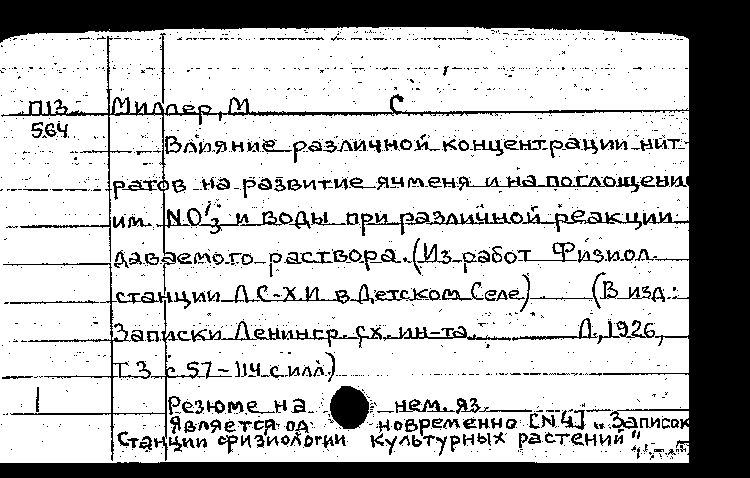 П13 Миллер, М С
564
Влияние различной концентрации нит-
ратов на развитие ячменя и на поглощени
им NO'3 и воды при различной реакции
даваемого раствора. (Из работ Физиол.
станции Л.С-Х.И в Детском Селе) (В изд.:
Записки Ленингр. сх. ин-та. Л., 1926,
Т.3 с 57-114 с илл)
1 Резюме на нем. яз.
Является од новременно [N4] „Записок
Станции физиологии культурных растений"